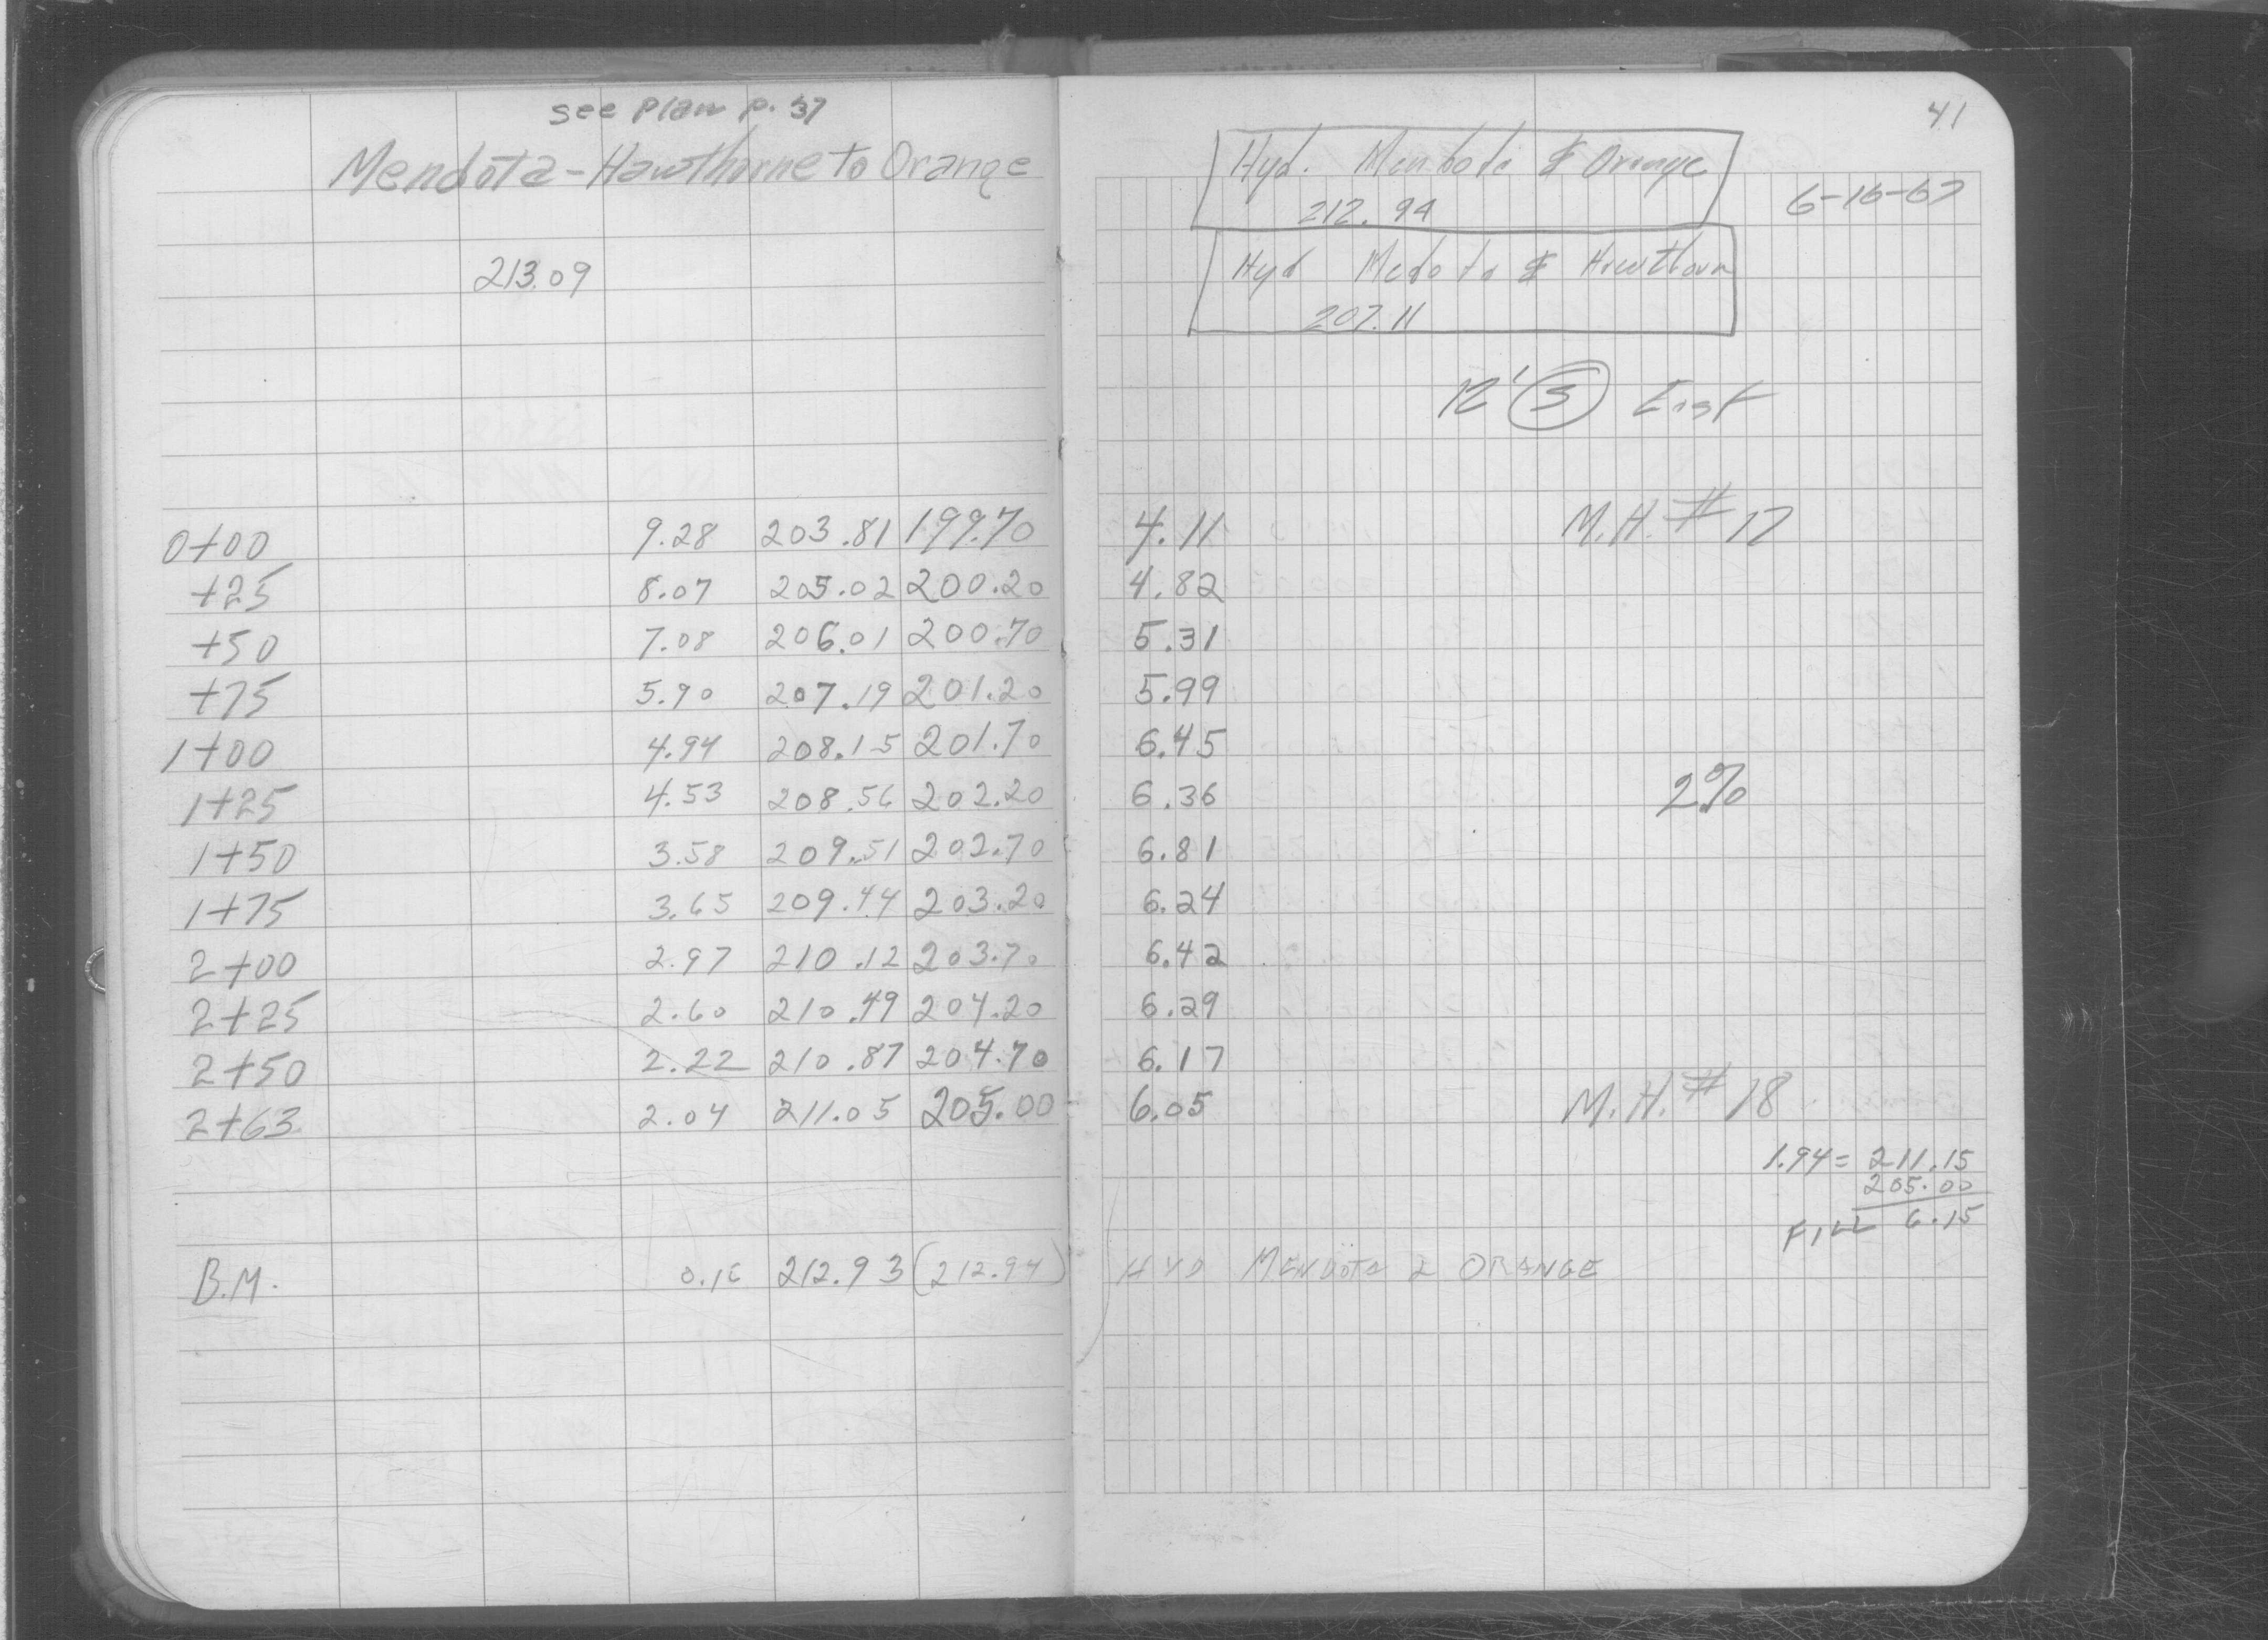 see plan p. 37
Mendota - Hawthorne to Orange
213.09
0+00 9.28 203.81 199.70
+25 8.07 205.02 200.20
+50 7.08 206.01 200.70
+75 5.90 207.19 201.20
1+00 4.94 208.15 201.70
1+25 4.53 208.56 202.20
1+50 3.58 209.51 202.70
1+75 3.65 209.44 203.20
2+00 2.97 210.12 203.70
2+25 2.60 210.49 204.20
2+50 2.22 210.87 204.70
2+63 2.04 211.05 205.00
B.M. 0.16 212.93 (212.94)
41
Hyd. Mendota & Orange
212.94
6-16-67
Hyd Medota & Hawthorn
207.11
12' S East
4.11 M.H. #17
4.82
5.31
5.99
6.45
6.36 2%
6.81
6.24
6.42
6.29
6.17
6.05 M.H. #18
1.94 = 211.15
205.00
FILL 6.15
HYD MENDOTA & ORANGE